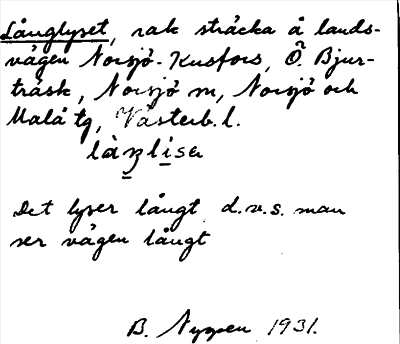 Långlyset, rak sträcka å lands-
vägen Norsjö-Kusfors, Ö. Bjur-
träsk, Norsjö sn, Norsjö och
Malå tg, Västerb. l.
Det lyser långt, d.v.s. man
ser vägen långt
B. Nygren 1931.